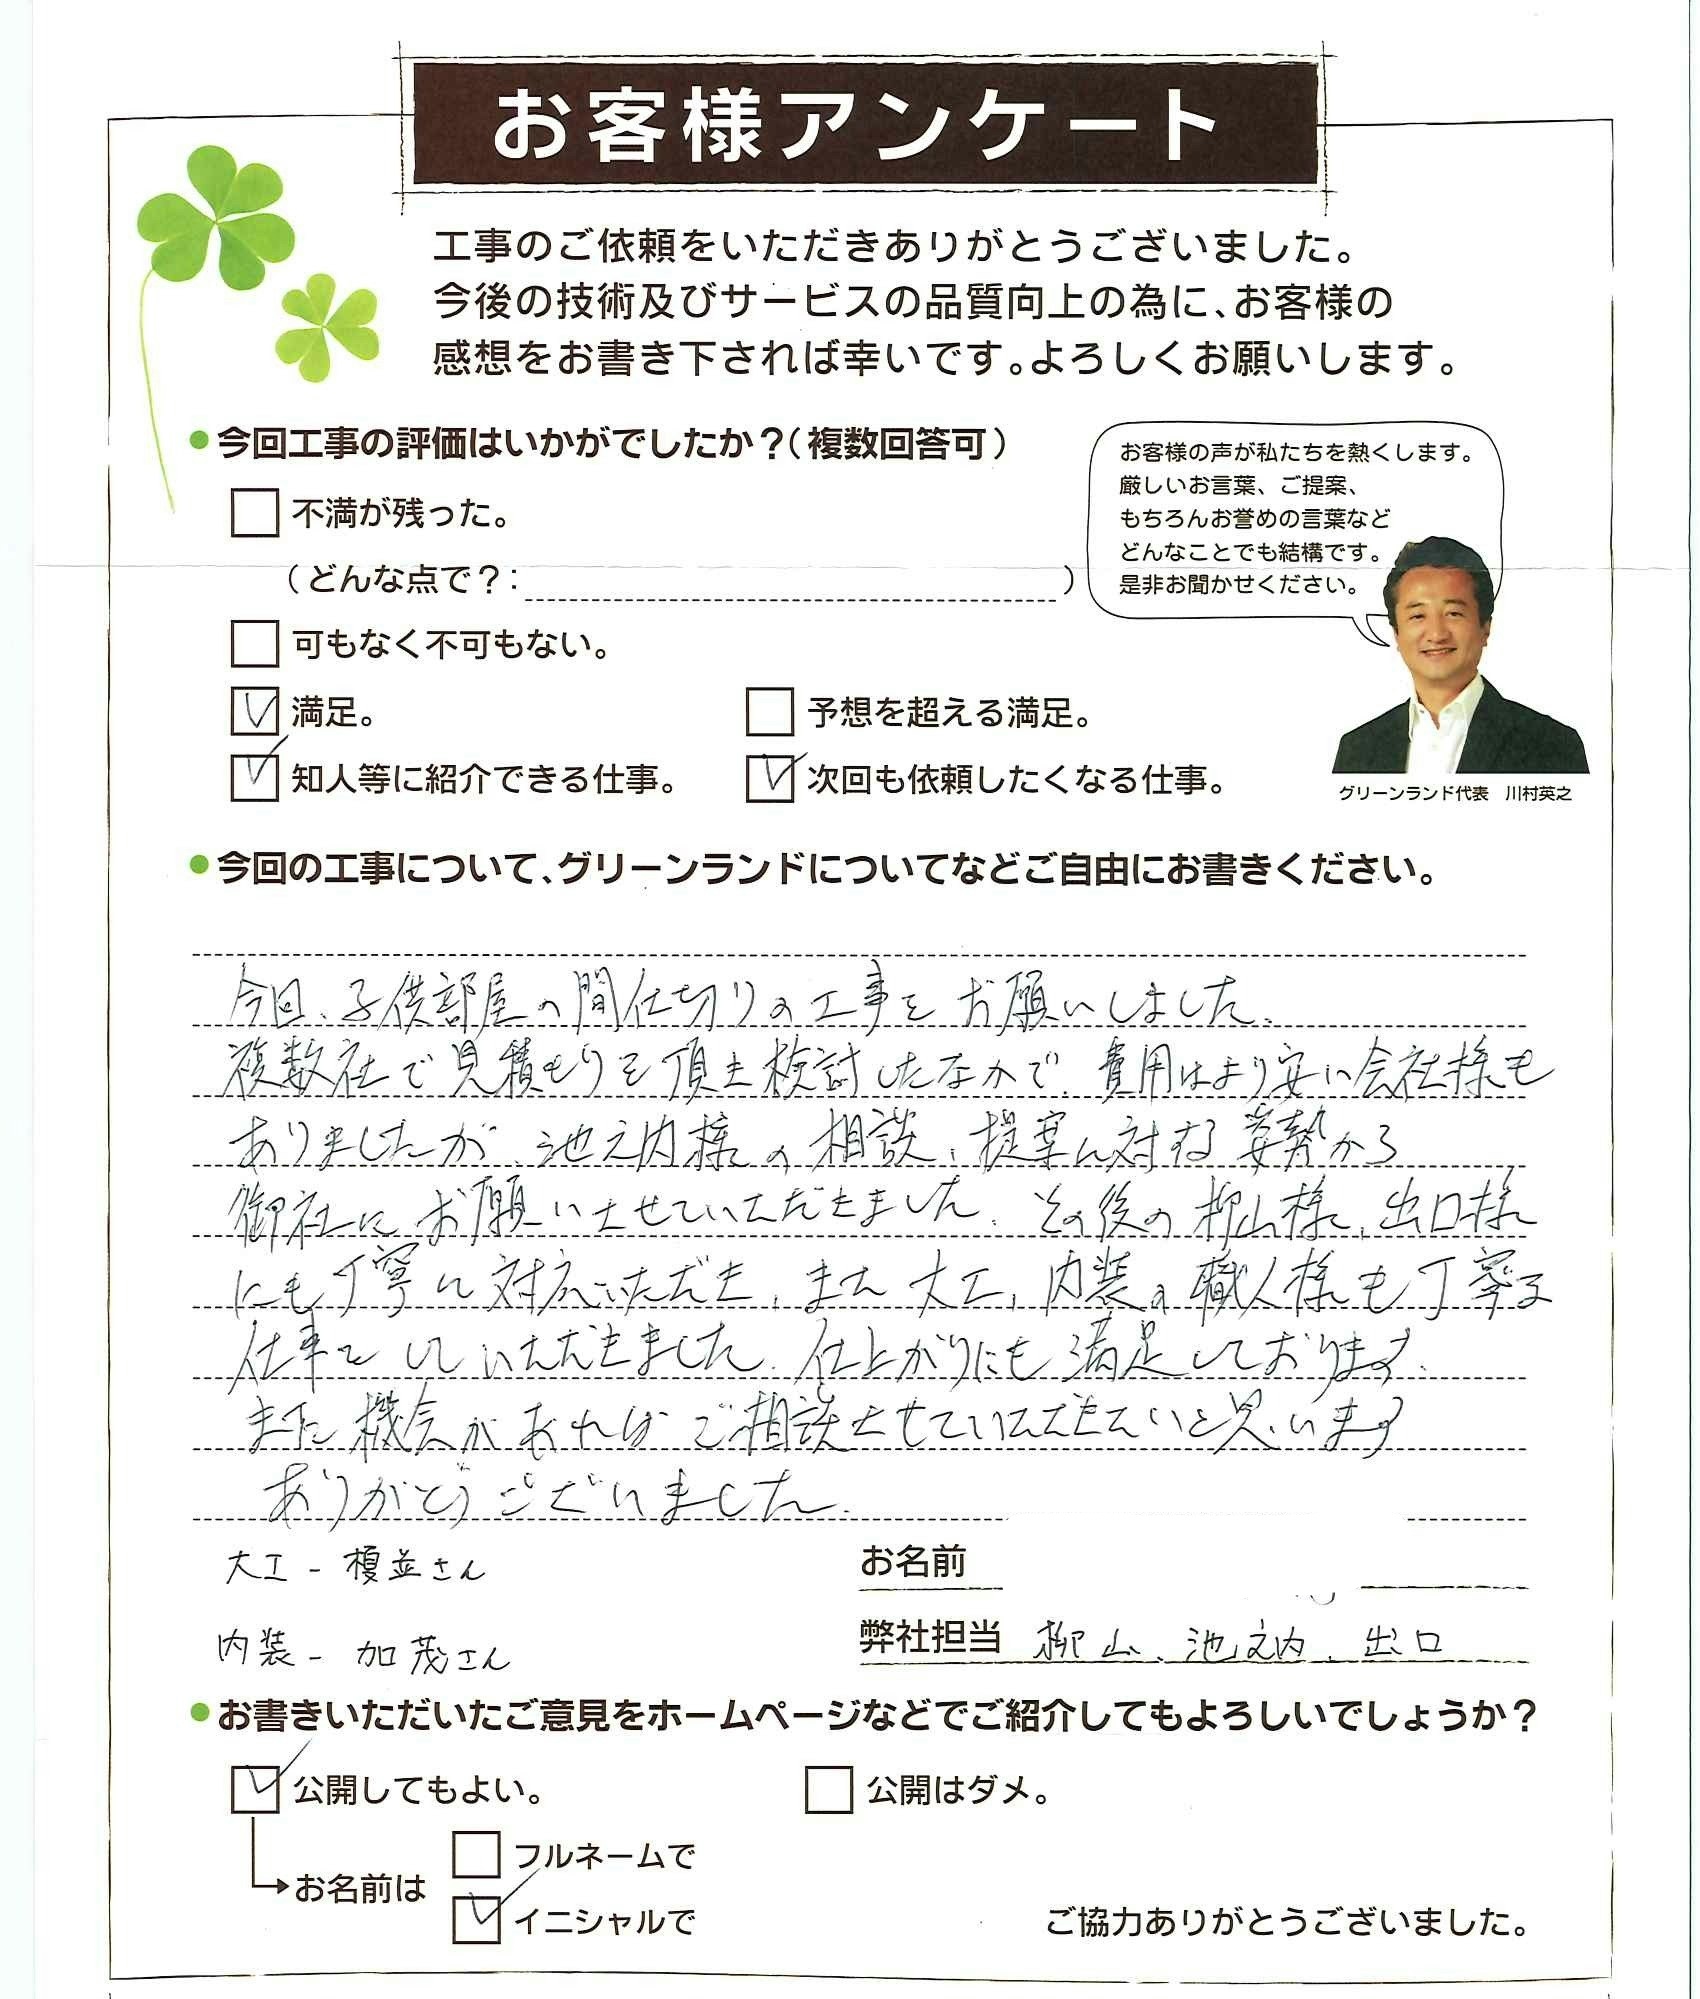 お客様アンケート
工事のご依頼をいただきありがとうございました。
今後の技術及びサービスの品質向上の為に、お客様の
感想をお書き下されば幸いです。よろしくお願いします。
●今回工事の評価はいかがでしたか？(複数回答可)
不満が残った。
(どんな点で？: )
可もなく不可もない。
満足。
予想を超える満足。
知人等に紹介できる仕事。
次回も依頼したくなる仕事。
お客様の声が私たちを熱くします。
厳しいお言葉、ご提案、
もちろんお誉めの言葉など
どんなことでも結構です。
是非お聞かせください。
グリーンランド代表 川村英之
●今回の工事について、グリーンランドについてなどご自由にお書きください。
今回、子供部屋の間仕切りの工事をお願いしました。
複数社で見積もりを頂き検討したなかで、費用はより安い会社様も
ありましたが、池之内様の相談、提案に対する姿勢から
御社にお願いさせていただきました。その後の柳山様、出口様
にも丁寧に対応いただき、また大工、内装の職人様も丁寧な
仕事をしていただきました。仕上がりにも満足しております。
また機会があればご相談させていただきたいと思います
ありがとうございました。
大工 - 榎並さん
内装 - 加茂さん
お名前
弊社担当 柳山、池之内、出口
●お書きいただいたご意見をホームページなどでご紹介してもよろしいでしょうか？
公開してもよい。
公開はダメ。
お名前は
フルネームで
イニシャルで
ご協力ありがとうございました。